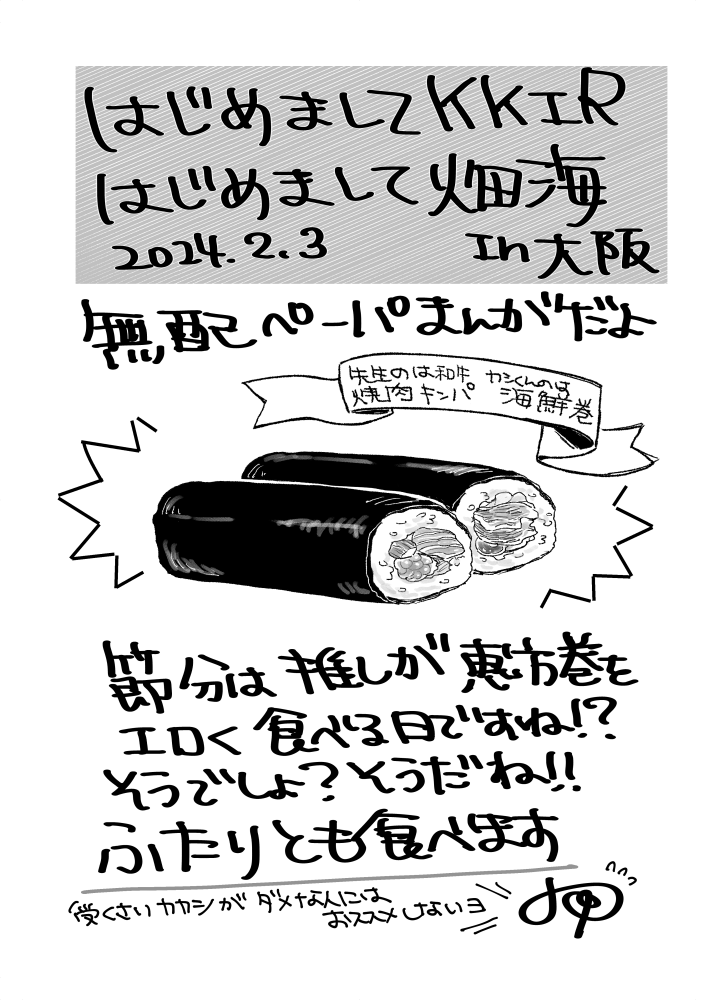 はじめましてKKIR
はじめまして畑海
2024.2.3 In大阪
無配ペーパーまんがだよ
先生のは和牛
焼肉キンパ
カシくんのは
海鮮巻
節分は推しが恵方巻を
エロく食べる日ですね!?
そうでしょ?そうだね!!
ふたりとも食べます
受くさいカカシがダメな人には
おススメしないヨ